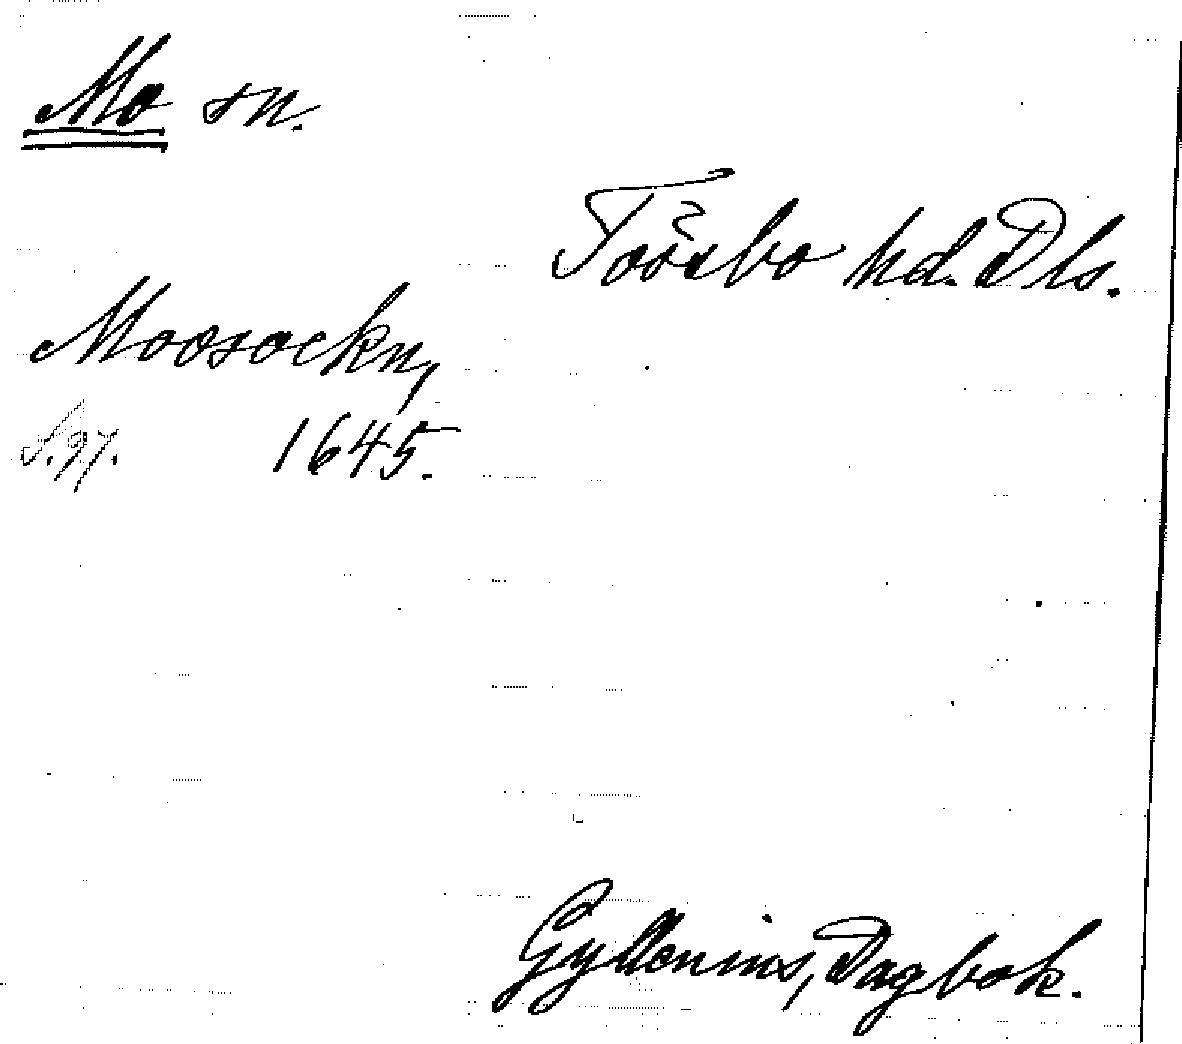 Mo sn.
Tössbo hd. Dls.
Moosockn,
S. 97. 1645.
Gyllenius, Dagbok.